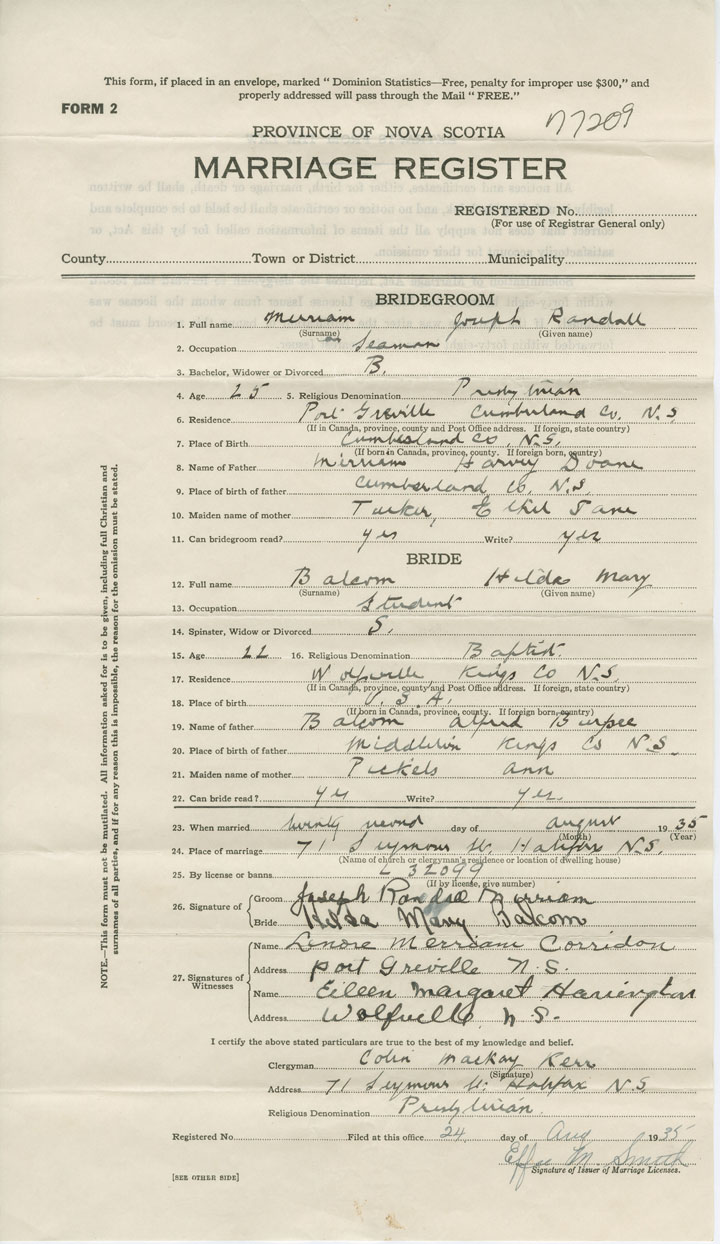 This form, if placed in an envelope, marked "Dominion Statistics—Free, penalty for improper use $300," and
properly addressed will pass through the Mail "FREE."
FORM 2
77209
PROVINCE OF NOVA SCOTIA
MARRIAGE REGISTER
REGISTERED No.
(For use of Registrar General only)
County Town or District Municipality
BRIDEGROOM
1. Full name Merriam Joseph Randall
(Surname) (Given name)
2. Occupation Seaman
3. Bachelor, Widower or Divorced B.
4. Age 25 5. Religious Denomination Presbyterian
6. Residence Port Greville Cumberland Co. N.S
(If in Canada, province, county and Post Office address. If foreign, state country)
7. Place of Birth Cumberland Co, N.S.
(If born in Canada, province, county. If foreign born, country)
8. Name of Father Merriam Harvey Doane
9. Place of birth of father Cumberland Co. N.S.
10. Maiden name of mother Tucker, Ethel Jane
11. Can bridegroom read? yes Write? yes
BRIDE
12. Full name Balcom Hilda Mary
(Surname) (Given name)
13. Occupation Student
14. Spinster, Widow or Divorced S.
15. Age 22 16. Religious Denomination Baptist.
17. Residence Wolfville, Kings Co N.S.
(If in Canada, province, county and Post Office address. If foreign, state country)
18. Place of birth U.S.A.
(If born in Canada, province, county. If foreign born, country)
19. Name of father Balcom Alfred Burpee
20. Place of birth of father Middleton Kings Co N.S.
21. Maiden name of mother Pickels Ann
22. Can bride read? yes Write? yes.
23. When married twenty second day of August 1935
(Month) (Year)
24. Place of marriage 71 Seymour St. Halifax N.S.
(Name of church or clergyman's residence or location of dwelling house)
25. By license or banns L 32099
(If by license, give number)
26. Signature of Groom Joseph Randall Merriam
Bride Hilda Mary Balcom
27. Signatures of Witnesses
Name Lenore Merriam Corridon
Address Port Greville N.S.
Name Eileen Margaret Harrington
Address Wolfville N.S.
I certify the above stated particulars are true to the best of my knowledge and belief.
Clergyman Colin Mackay Kerr
(Signature)
Address 71 Seymour St. Halifax N.S.
Religious Denomination Presbyterian.
Registered No. Filed at this office 24 day of Aug 1935
Effie M. Smith
Signature of Issuer of Marriage Licenses.
[SEE OTHER SIDE]
NOTE.—This form must not be mutilated. All information asked for is to be given, including full Christian and
surnames of all parties, and if for any reason this is impossible, the reason for the omission must be stated.